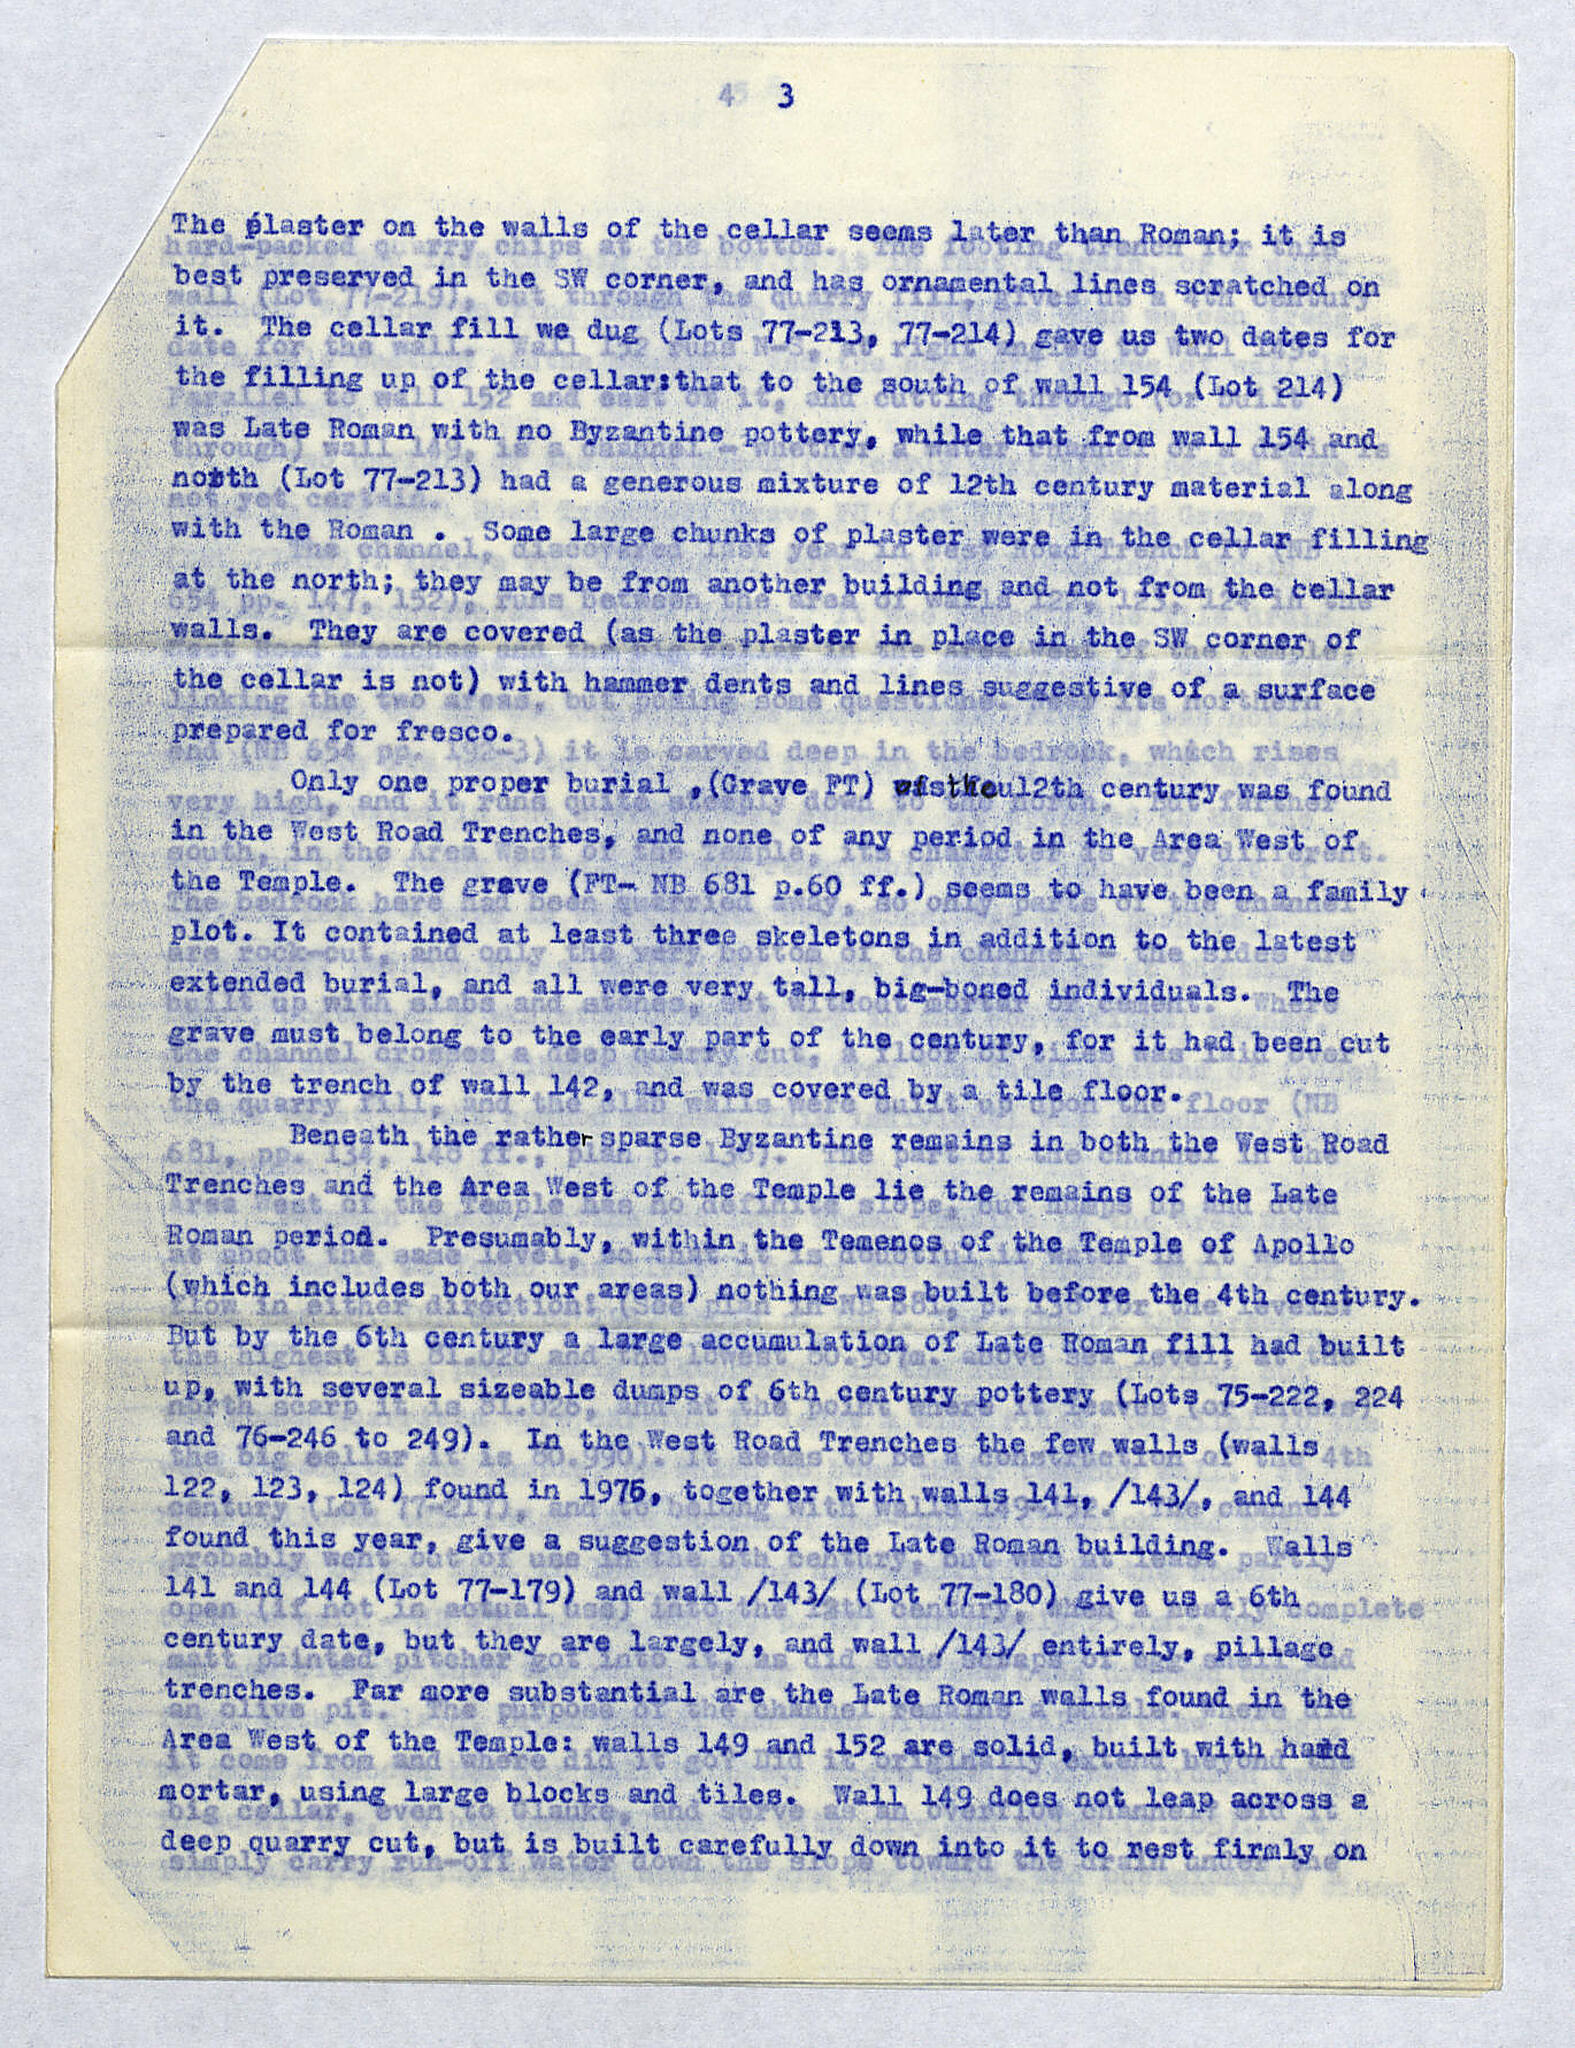 3
The plaster on the walls of the cellar seems later than Roman; it is
best preserved in the SW corner, and has ornamental lines scratched on
it. The cellar fill we dug (Lots 77-213, 77-214) gave us two dates for
the filling up of the cellar:that to the south of wall 154 (Lot 214)
was Late Roman with no Byzantine pottery, while that from wall 154 and
north (Lot 77-213) had a generous mixture of 12th century material along
with the Roman . Some large chunks of plaster were in the cellar filling
at the north; they may be from another building and not from the cellar
walls. They are covered (as the plaster in place in the SW corner of
the cellar is not) with hammer dents and lines suggestive of a surface
prepared for fresco.
Only one proper burial ,(Grave FT) of the 12th century was found
in the West Road Trenches, and none of any period in the Area West of
the Temple. The grave (FT- NB 681 p.60 ff.) seems to have been a family
plot. It contained at least three skeletons in addition to the latest
extended burial, and all were very tall, big-boned individuals. The
grave must belong to the early part of the century, for it had been cut
by the trench of wall 142, and was covered by a tile floor.
Beneath the rather sparse Byzantine remains in both the West Road
Trenches and the Area West of the Temple lie the remains of the Late
Roman period. Presumably, within the Temenos of the Temple of Apollo
(which includes both our areas) nothing was built before the 4th century.
But by the 6th century a large accumulation of Late Roman fill had built
up, with several sizeable dumps of 6th century pottery (Lots 75-222, 224
and 76-246 to 249). In the West Road Trenches the few walls (walls
122, 123, 124) found in 1976, together with walls 141, /143/, and 144
found this year, give a suggestion of the Late Roman building. Walls
141 and 144 (Lot 77-179) and wall /143/ (Lot 77-180) give us a 6th
century date, but they are largely, and wall /143/ entirely, pillage
trenches. Far more substantial are the Late Roman walls found in the
Area West of the Temple: walls 149 and 152 are solid, built with hard
mortar, using large blocks and tiles. Wall 149 does not leap across a
deep quarry cut, but is built carefully down into it to rest firmly on